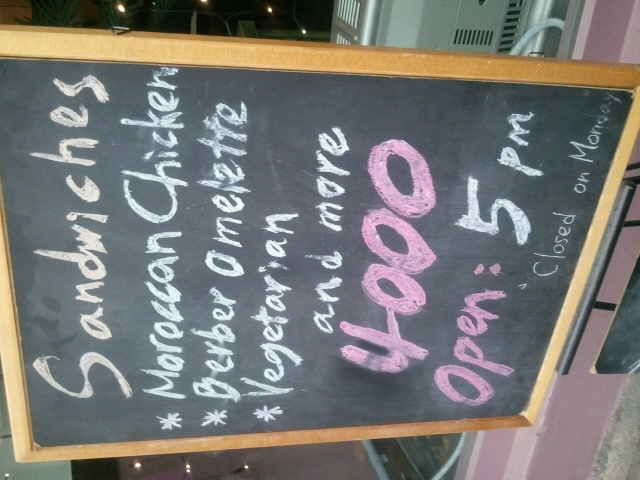 Sandwiches
* Moroccan Chicken
* Berber Omelette
* Vegetarian
and more
4000
Open: 5 pm
"Closed on Monday"